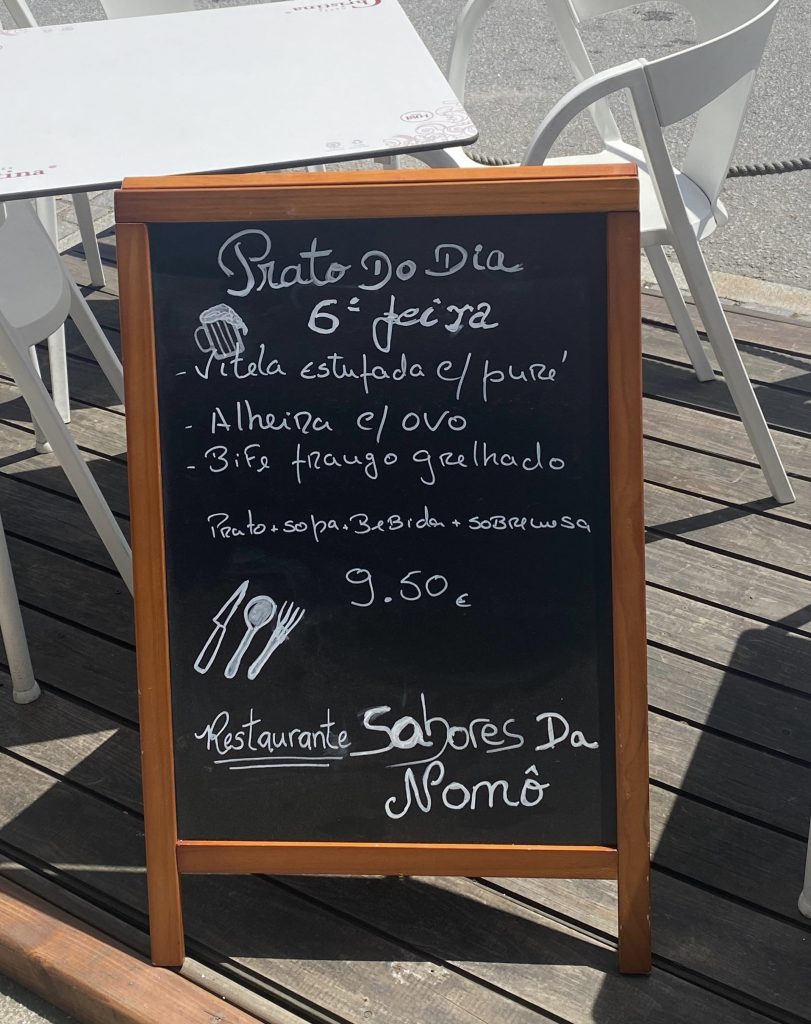 Christina
Prato Do Dia
6ª feira
- Vitela Estufada c/ puré
- Alheira c/ ovo
- Bife frango grelhado
Prato + sopa + Bebida + sobremesa
9.50 €
Restaurante Sabores Da
Nomô